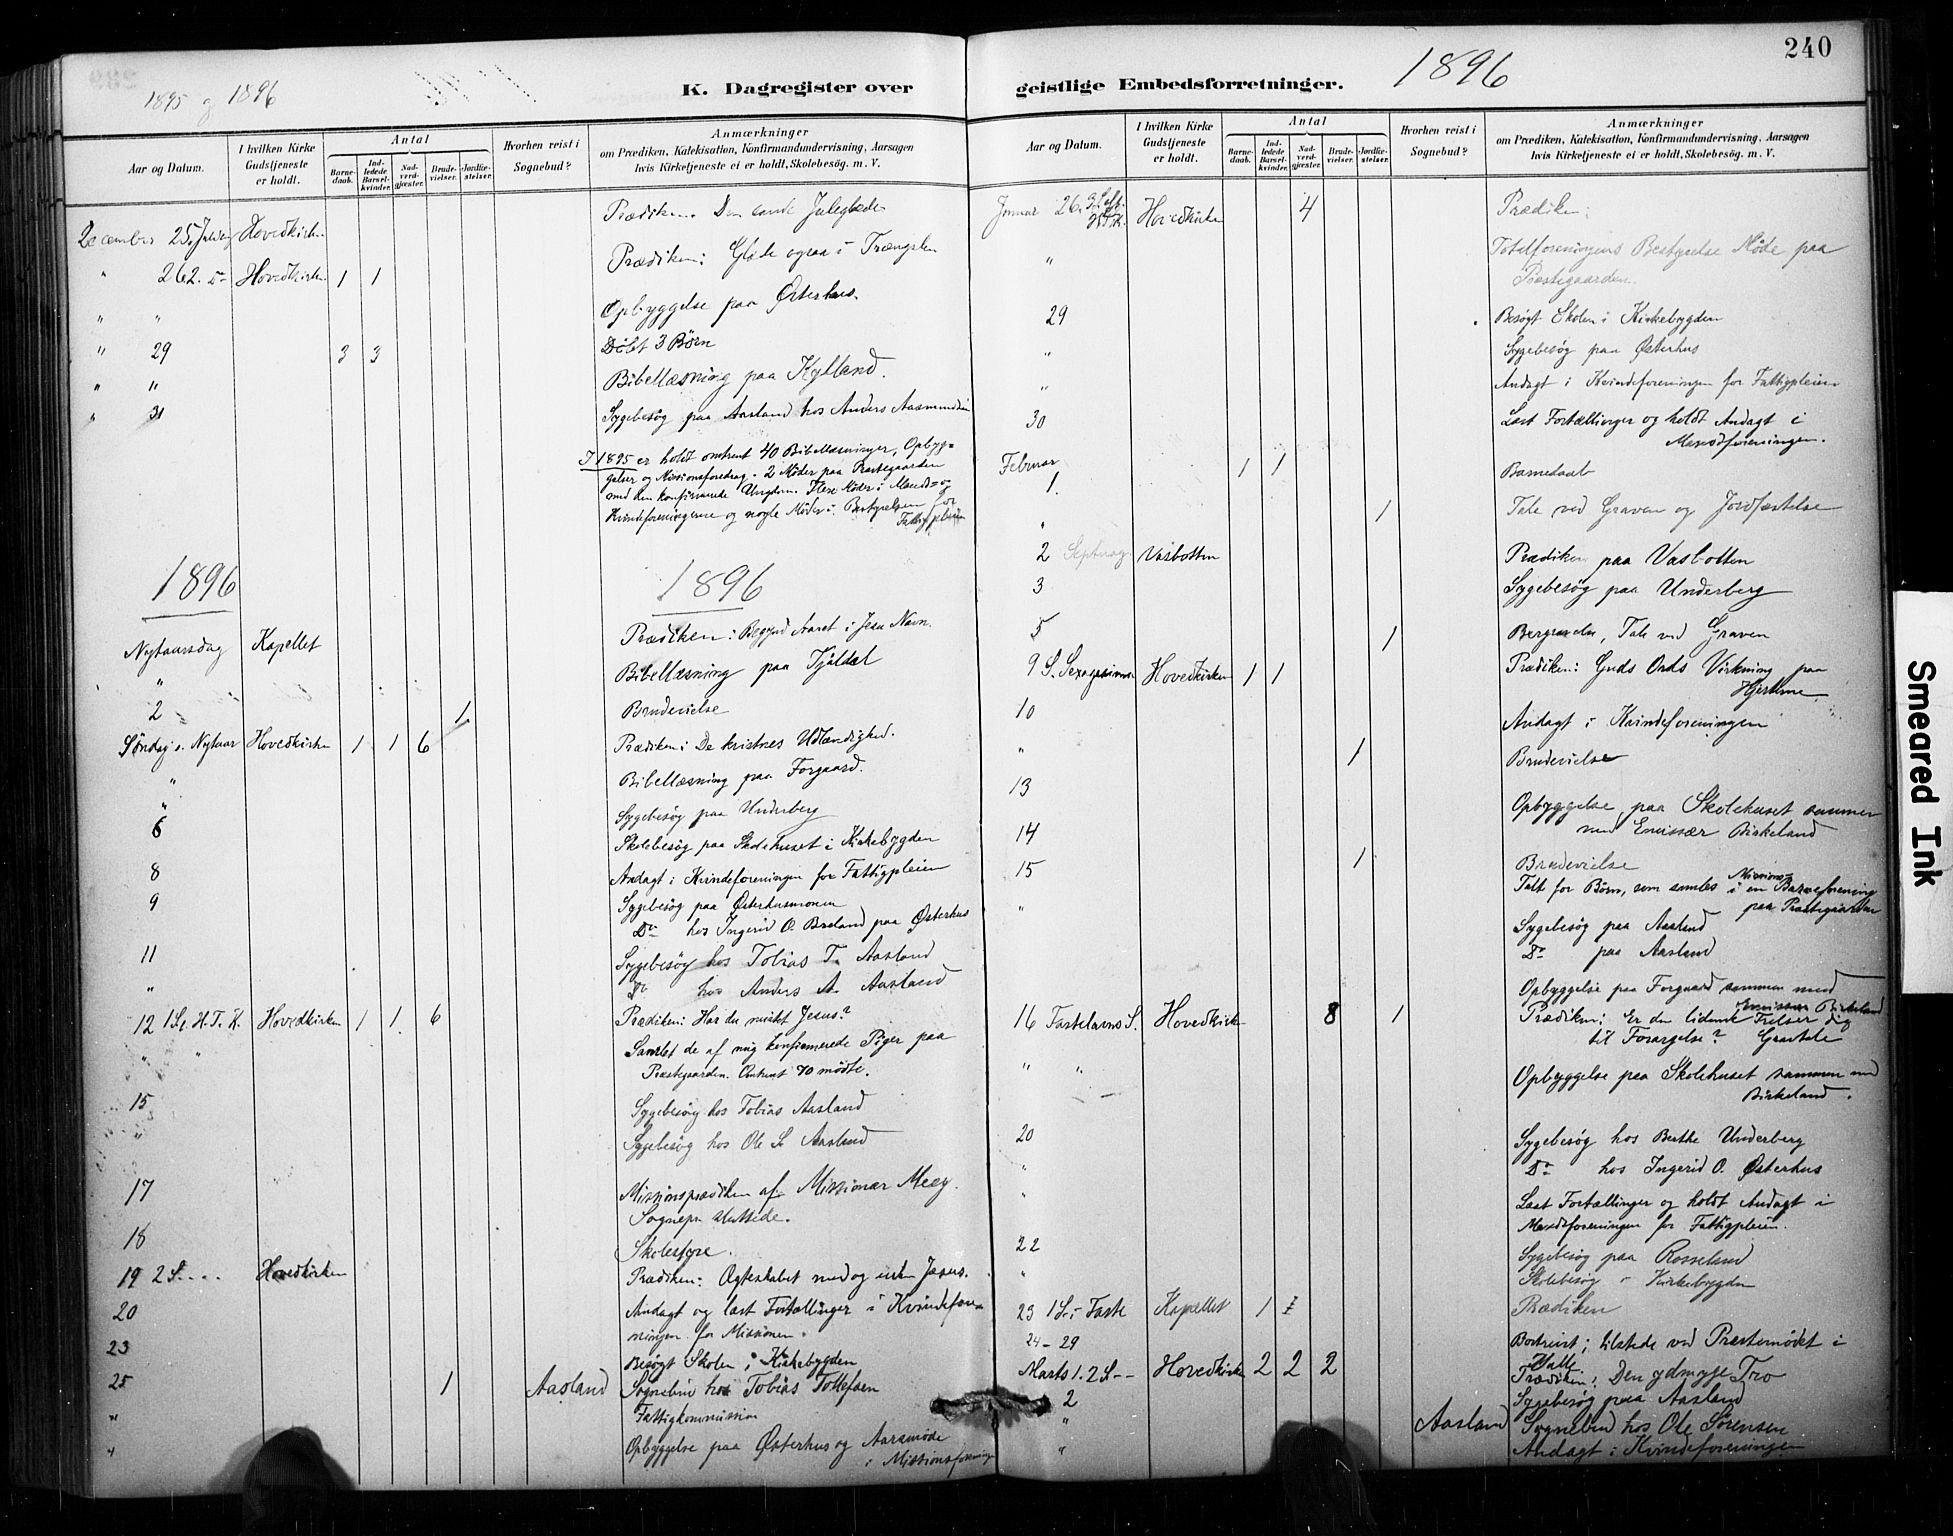 1895 og 1896
K. Dagregister over
Aar og Datum.
I hvilken Kirke Gudstjeneste er holdt.
Antal
Barnedaab.
Indledede Barselkvinder.
Nadverdgjester.
Brudevielser.
Jordfæstelser.
Hvorhen reist i Sognebud?
Anmærkninger
om Prædiken, Katekisation, Konfirmandundervisning, Aarsagen
hvis Kirketjeneste ei er holdt, Skolebesøg. m. V.
December 25. Juledag Hovedkirken Prædiken. Den sande Juleglæde
" 26 2. D- Hovedkirken 1 1 Prædiken: Glæde ogsaa i Trængslen
" " Opbyggelse paa Østerhus.
" 29 3 3 Døbt 3 Børn
" " Bibellæsning paa Kylland.
" 31 Sygebesøg paa Aasland hos Anders Aasmundsen
I 1895 er holdt omtrent 40 Bibellæsninger, Opbyg-
gelser og Missionsforedrag. 2 Møder paa Præstegaarden
med den konfirmerede Ungdom. Flere Møder i Mands- og
Kvindeforeningerne og nogle Møder i Bestyrelsen for
Fattigpleien
1896 1896
Nytaarsdag Kapellet Prædiken: Begynd Aaret i Jesu Navn.
" Bibellæsning paa Tjaldal
2 1 Brudevielse
Søndag e. Nytaar Hovedkirken 1 1 6 Prædiken: De kristnes Udlændighed.
" Bibellæsning paa Forgaard.
" Sygebesøg paa Underberg
6 Skolebesøg paa Skolehuset i Kirkebygden
8 Andagt i Kvindeforeningen for Fattigpleien
9 Sygebesøg paa Østerhusmonen
Do hos Ingerid O. Breland paa Østerhus
11 Sygebesøg hos Tobias T. Aasland
" Do hos Anders A. Aasland
12 1 S. e. H. T. K. Hovedkirken 1 1 6 Prædiken: Har du mistet Jesus?
" " Samlet de af mig konfirmerede Piger paa
Præstegaarden. Omtrent 70 mødte.
15 Sygebesøg hos Tobias Aasland
" Sygebesøg hos Ole S. Aasland
17 Missionsprædiken af Missionær Meeg.
Sognepr. sluttede.
18 Skolestyre.
19 2 S. . . . Hovedkirken Prædiken: Ægteskabet med og uden Jesus.
20 Andagt og læst Fortællinger i Kvindefore-
ningen for Missionen.
23 Besøgt Skolen i Kirkebygden
25 1 Aasland Sognebud hos Tobias Tollefsen
" Fattigkommission
" Opbyggelse paa Østerhus og Aarsmøde
i Missionsforeningen
geistlige Embedsforretninger. 1896
240
Aar og Datum.
I hvilken Kirke Gudstjeneste er holdt.
Antal
Barnedaab.
Indledede Barselkvinder.
Nadverdgjester.
Brudevielser.
Jordfæstelser.
Hvorhen reist i Sognebud?
Anmærkninger
om Prædiken, Katekisation, Konfirmandundervisning, Aarsagen
hvis Kirketjeneste ei er holdt, Skolebesög. m. V.
Januar 26. Hovedkirken 4 Prædiken:
" Totalforeningens Bestyrelse Møde paa
Præstegaarden.
29 Besøgt Skolen i Kirkebygden
" Sygebesøg paa Østerhus
" Andagt i Kvindeforeningen for Fattigpleien
30 Læst Fortællinger og holdt Andagt i
Mandsforeningen.
Februar
1. 1 1 Barnedaab
" 1 Tale ved Graven og Jordfæstelse
2 Septuag. Vasbotten Prædiken paa Vasbotten
3 Sygebesøg paa Underberg
5 1 Begravelse, Tale ved Graven
9 S. Sexagesima Hovedkirken 1 1 Prædiken: Guds Ords Virkning paa
Hjerterne
10 Andagt i Kvindeforeningen
" 1 Brudevielse
13 Opbyggelse paa Skolehuset sammen
med Emissær Birkeland
14 1 Brudevielse
15 Talt for Børn, som samles i en Missions-Barneforening
paa Præstegaarden
" Sygebesøg paa Aasland
Do paa Aasland
Opbyggelse paa Forgaard sammen med
Emissær Birkeland
16 Fastelavns S. Hovedkirken 8 1 Prædiken: Er den lidende Frelser dig
til Forargelse? Gravtale
" " Opbyggelse paa Skolehuset sammen med
Birkeland.
20 Sygebesøg hos Berthe Underberg
" Do hos Ingerid O. Østerhus
" Læst Fortællinger og holdt Andagt i
Mandsforeningen for Fattigpleien.
22 Sygebesøg paa Rosseland
" Skolebesøg i Kirkebygden
23 1 S. i Faste Kapellet 1 1 Prædiken
24-29 Bortreist; tilstede ved Præstemødet i
Valle
Marts 1. 2 S-- Hovedkirken 2 2 2 Prædiken: Den ydmyge Tro
2 Sygebesøg paa Aasland
" Aasland Sognebud hos Ole Sørensen
" Andagt i Kvindeforeningen
Smeared Ink